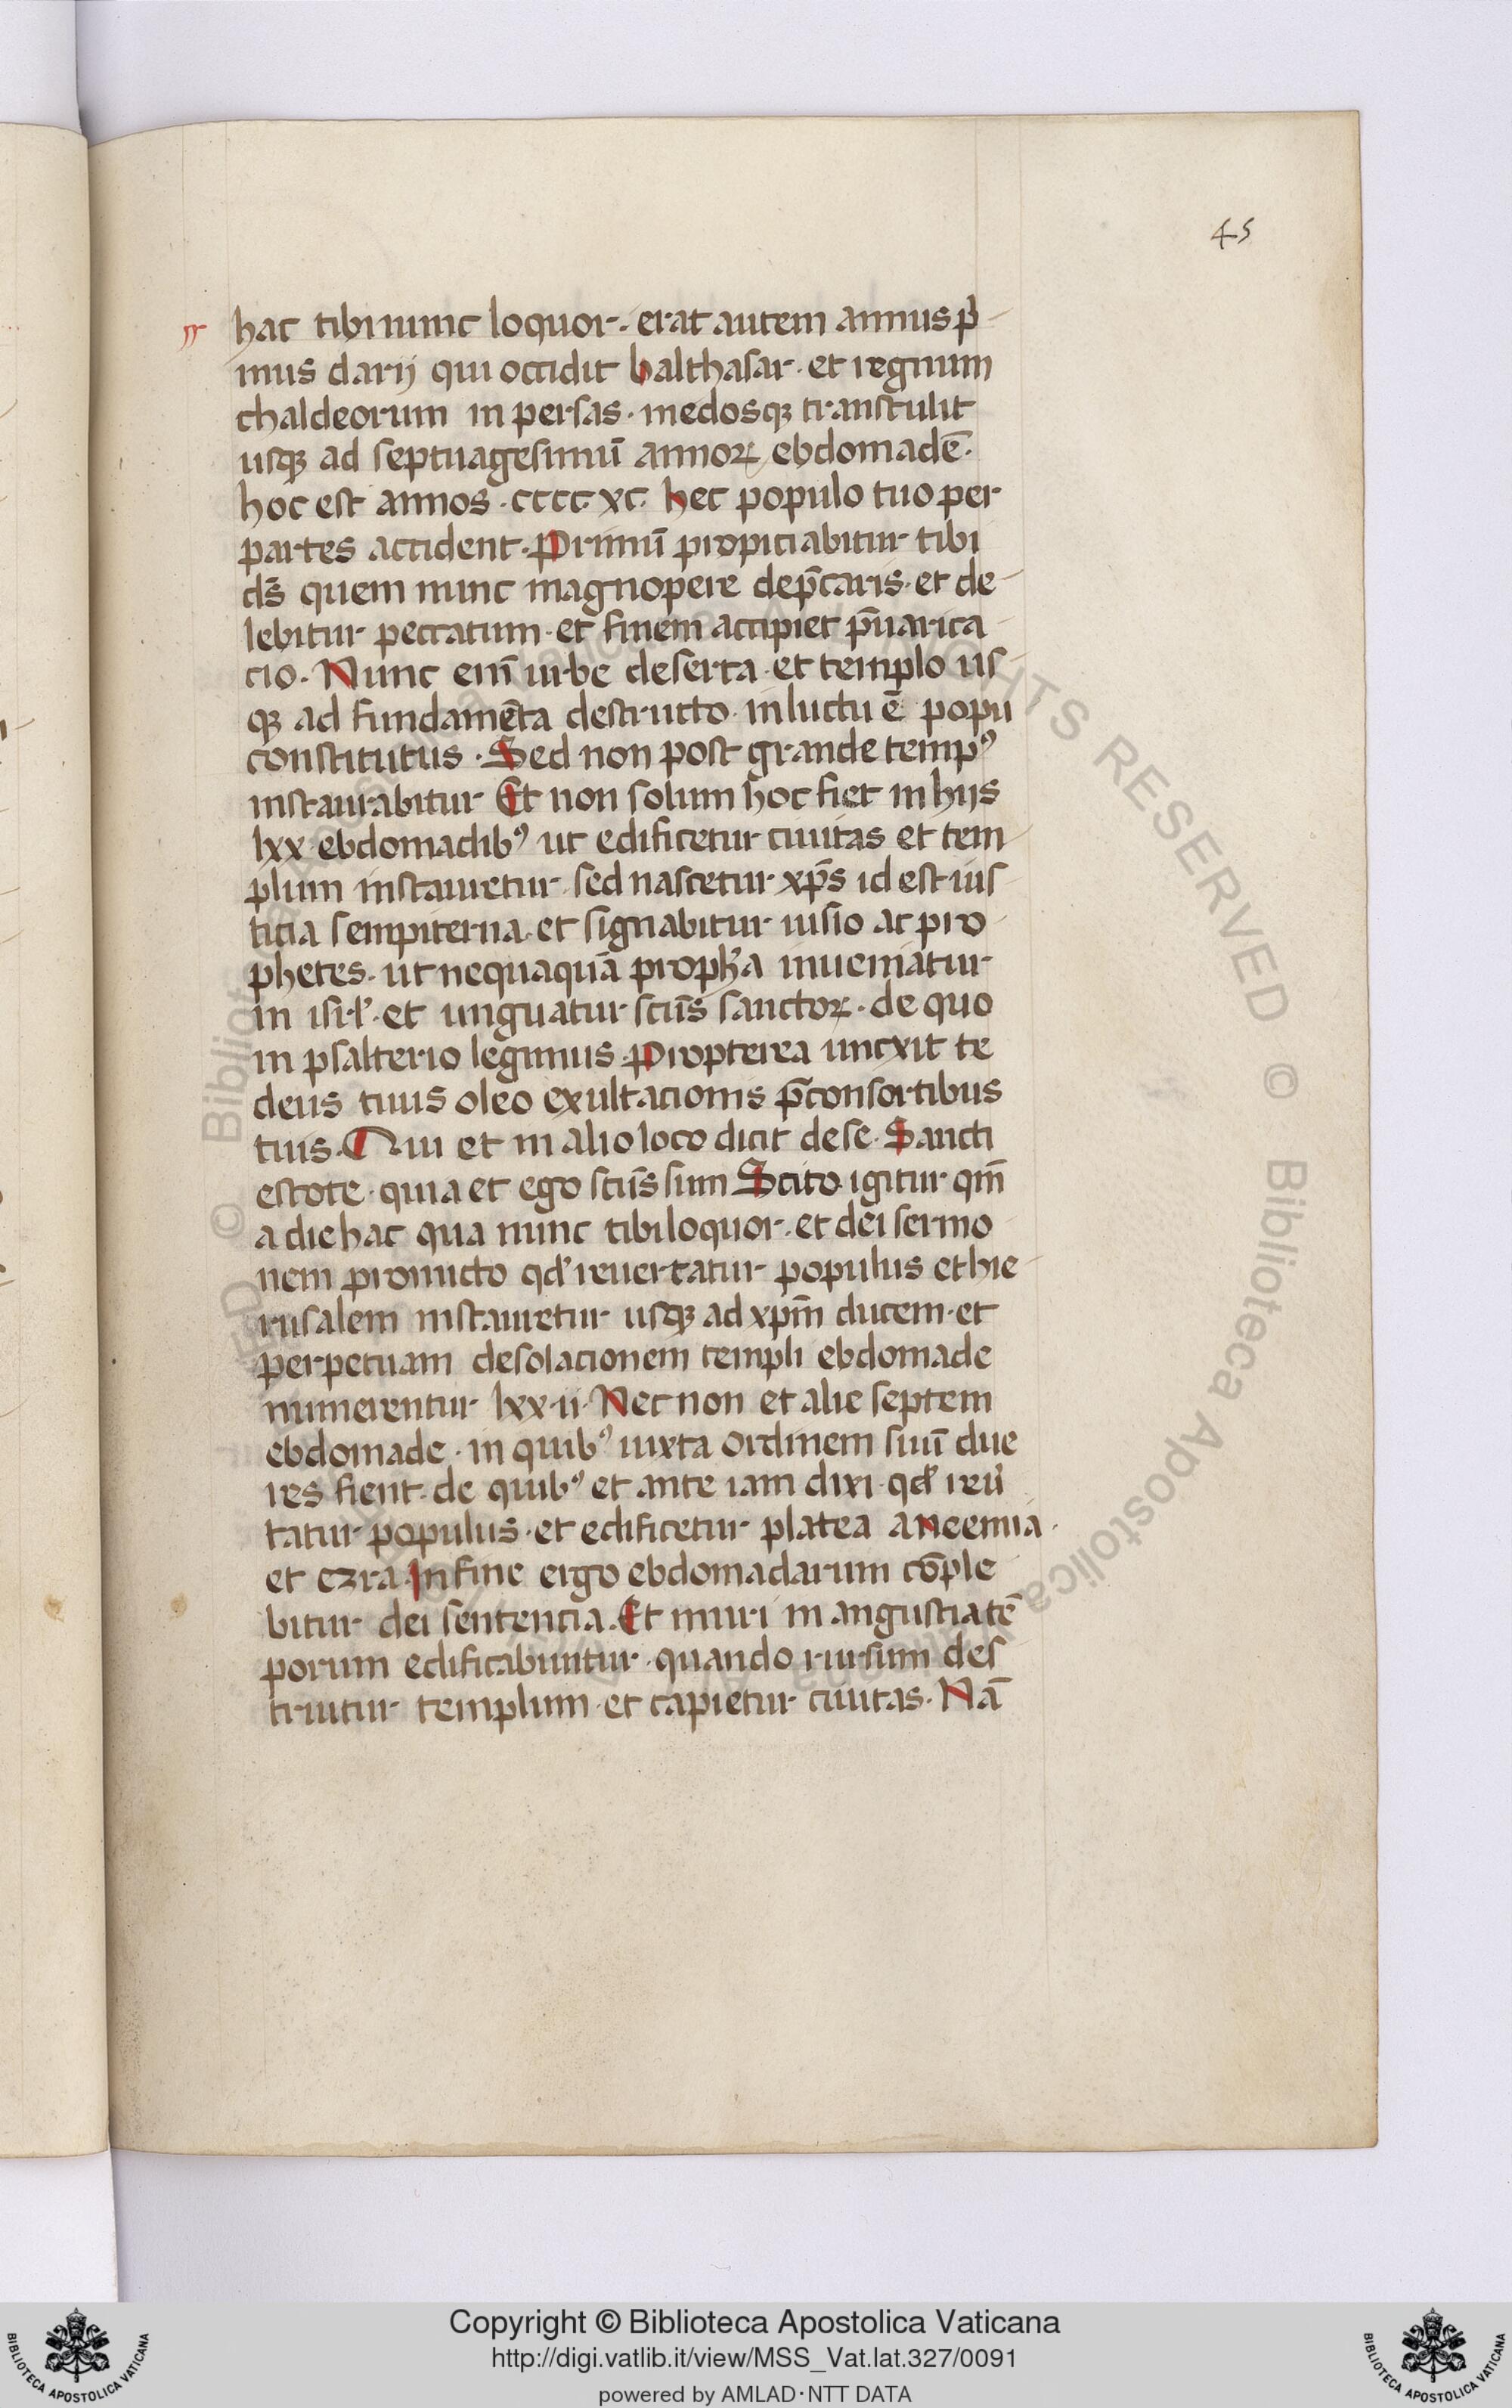 45
hac tibi nunc loquor. erat autem annus p̄
mus darij qui occidit balthasar. et regnum
chaldeorum in persas. medosqꝫ transtulit
usqꝫ ad septuagesimū annoꝝ ebdomadē.
hoc est annos .cccc.xc. hec populo tuo per
partes accident. Primū propiciabitur tibi
ds̄ quem nunc magnopere dep̄caris. et de
lebitur peccatum. et finem accipiet p̄uarica
cio. Nunc em̄ urbe deserta. et templo us
qꝫ ad fundamēta destructo. in luctu ē popu
constitutus. Sed non post grande tempꝰ
instaurabitur Et non solum hoc fiet in hijs
lxx ebdomadibꝰ ut edificetur ciuitas et tem
plum instauretur. sed nascetur xp̄s id est ius
ticia sempiterna. et signabitur uisio ac pro
phetes. ut nequaquā proph̄a inueniatur
in isrl̄. et unguatur scūs sanctoꝝ. de quo
in psalterio legimus. Propterea uncxit te
deus tuus oleo exultacionis p̄ consortibus
tuis. Qui et in alio loco dicit de se. Sancti
estote. quia et ego scūs sum Scito igitur qm̄
a die hac qua nunc tibi loquor. et dei sermo
nem promicto qd̄ reuertatur populus et hie
rusalem instauretur usqꝫ ad xpm̄ ducem. et
perpetuam desolacionem templi ebdomade
numerentur lxx.ii. Nec non et alie septem
ebdomade. in quibꝰ iuxta ordinem suū due
res fient. de quibꝰ et ante iam dixi. qd̄ reu̾
tatur populus. et edificetur platea a neemia.
et ezra. In fine ergo ebdomadarum cōple
bitur dei sentencia. Et muri in angustia tē
porum edificabuntur. quando rursum des
truitur templum. et capietur ciuitas. Nā
Copyright © Biblioteca Apostolica Vaticana
http://digi.vatlib.it/view/MSS_Vat.lat.327/0091
powered by AMLAD·NTT DATA